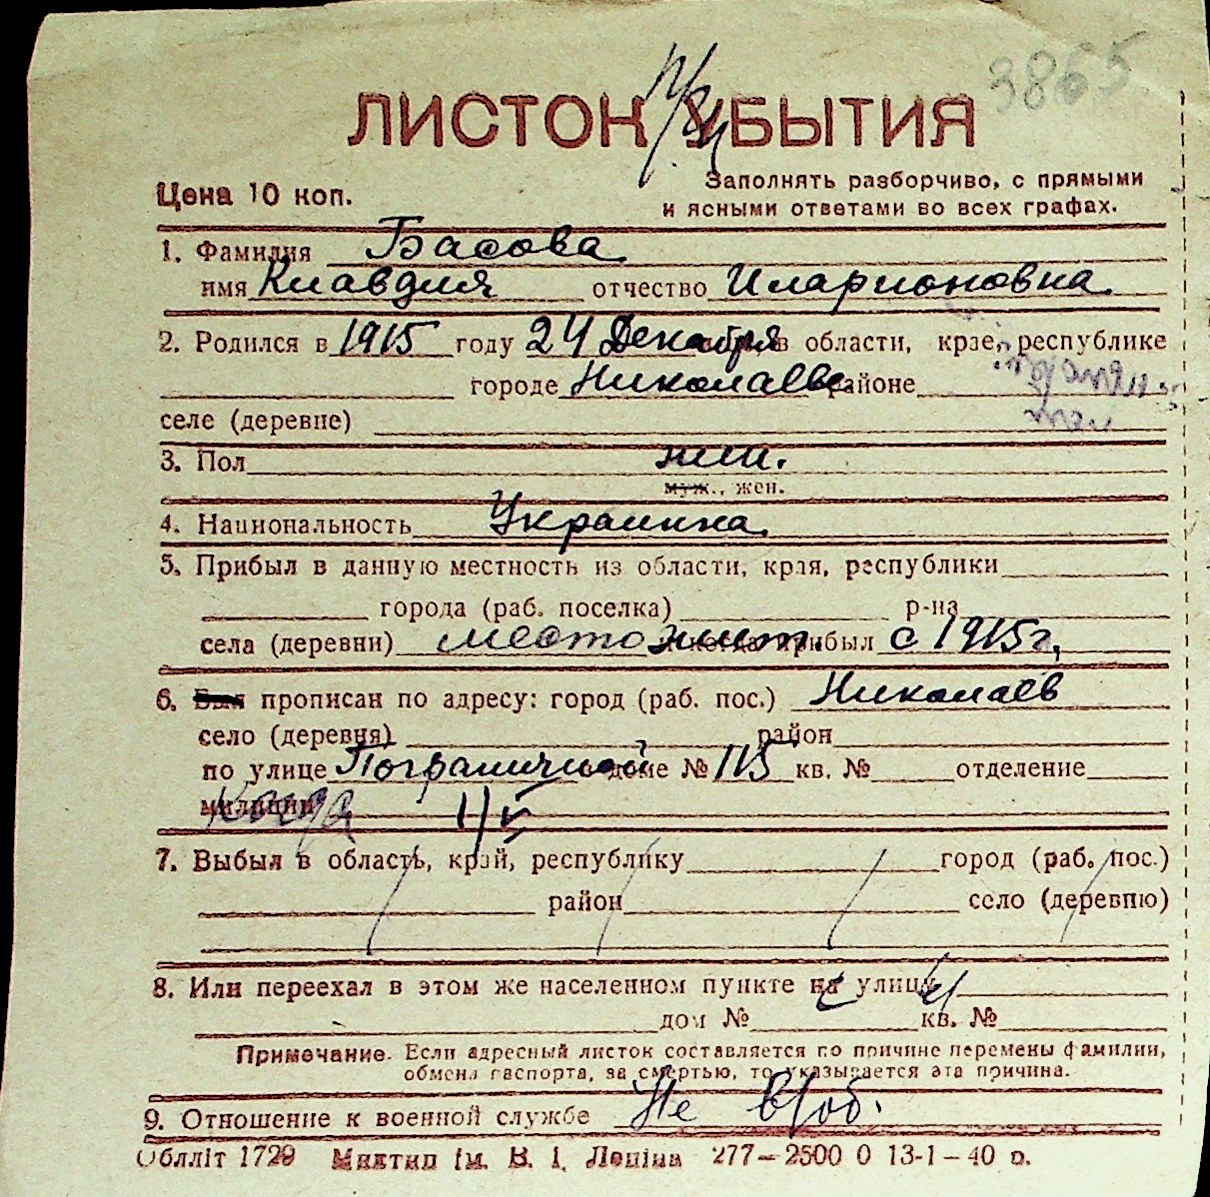 3865
ЛИСТОК УБЫТИЯ
Цена 10 коп.
Заполнять разборчиво, с прямыми
и ясными ответами во всех графах.
1. Фамилия Басова
имя Клавдия отчество Иларионовна
2. Родился в 1915 году 24 Декабря в области, крае, республике
городе Николаеве районе
селе (деревне)
3. Пол жен.
муж., жен.
4. Национальность Украинка
5. Прибыл в данную местность из области, края, республики
города (раб. поселка) р-на
села (деревни) местожит. прибыл с 1915 г.
6. Был прописан по адресу: город (раб. пос.) Николаев
село (деревня) район
по улице Пограничной доме № 115 кв. № отделение
милиции
7. Выбыл в область, край, республику город (раб. пос.)
район село (деревню)
8. Или переехал в этом же населенном пункте на улицу
дом № кв. №
Примечание. Если адресный листок составляется по причине перемены фамилии,
обмена паспорта, за смертью, то указывается эта причина.
9. Отношение к военной службе Не в/об.
Облліт 1729 Миктип ім. В. І. Леніна 277—2500 0 13-1—40 р.